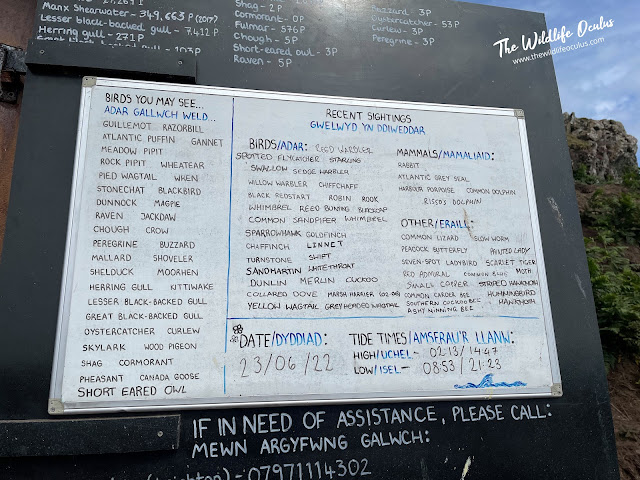 Manx Shearwater - 349,663 P (2017)
Lesser black-backed gull - 7,412 P
Herring gull - 271 P
103P
Shag - 2 P
Cormorant - 0P
Fulmar - 576 P
Chough - 5P
Short-eared owl - 3P
Raven - 5P
Buzzard - 3P
Oystercatcher - 53P
Curlew - 3P
Peregrine - 3P
The Wildlife Oculus
www.thewildlifeoculus.com
BIRDS YOU MAY SEE...
ADAR GALLWCH WELD...
GUILLEMOT RAZORBILL
ATLANTIC PUFFIN GANNET
MEADOW PIPIT
ROCK PIPIT WHEATEAR
PIED WAGTAIL WREN
STONECHAT BLACKBIRD
DUNNOCK MAGPIE
RAVEN JACKDAW
CHOUGH CROW
PEREGRINE BUZZARD
MALLARD SHOVELER
SHELDUCK MOORHEN
HERRING GULL KITTIWAKE
LESSER BLACK-BACKED GULL
GREAT BLACK-BACKED GULL
OYSTERCATCHER CURLEW
SKYLARK WOOD PIGEON
SHAG CORMORANT
PHEASANT CANADA GOOSE
SHORT EARED OWL
RECENT SIGHTINGS
GWELWYD YN DDIWEDDAR
BIRDS/ADAR: REED WARBLER
SPOTTED FLYCATCHER STARLING
SWALLOW SEDGE WARBLER
WILLOW WARBLER CHIFFCHAFF
BLACK REDSTART ROBIN ROOK
WHIMBREL REED BUNING BLACKCAP
COMMON SANDPIPER WHIMBREL
SPARROWHAWK GOLDFINCH
CHAFFINCH LINNET
TURNSTONE SWIFT
SANDMARTIN WHITE-THROAT
DUNLIN MERLIN CUCKOO
COLLARED DOVE MARSH HARRIER
YELLOW WAGTAIL GREYHEADED WAGTAIL
MAMMALS/MAMALIAID:
RABBIT
ATLANTIC GREY SEAL
HARBOUR PORPOISE COMMON DOLPHIN
RISSO'S DOLPHIN
OTHER/ERAILL:
COMMON LIZARD SLOW WORM
PEACOCK BUTTERFLY PAINTED LADY
SEVEN-SPOT LADYBIRD SCARLET TIGER
RED ADMIRAL COMMON BLUE MOTH
SMALL COPPER STRIPED HAWKMOTH
COMMON CARDER BEE HUMMINGBIRD
SOUTHERN CUCKOO BEE HAWKMOTH
ASHY MINNING BEE
DATE/DYDDIAD:
23/06/22
TIDE TIMES/AMSERAU'R LLANW:
HIGH/UCHEL- 02:13/14:47
LOW/ISEL- 08:53/21:23
IF IN NEED OF ASSISTANCE, PLEASE CALL:
MEWN ARGYFWNG GALWCH:
- 07971114302